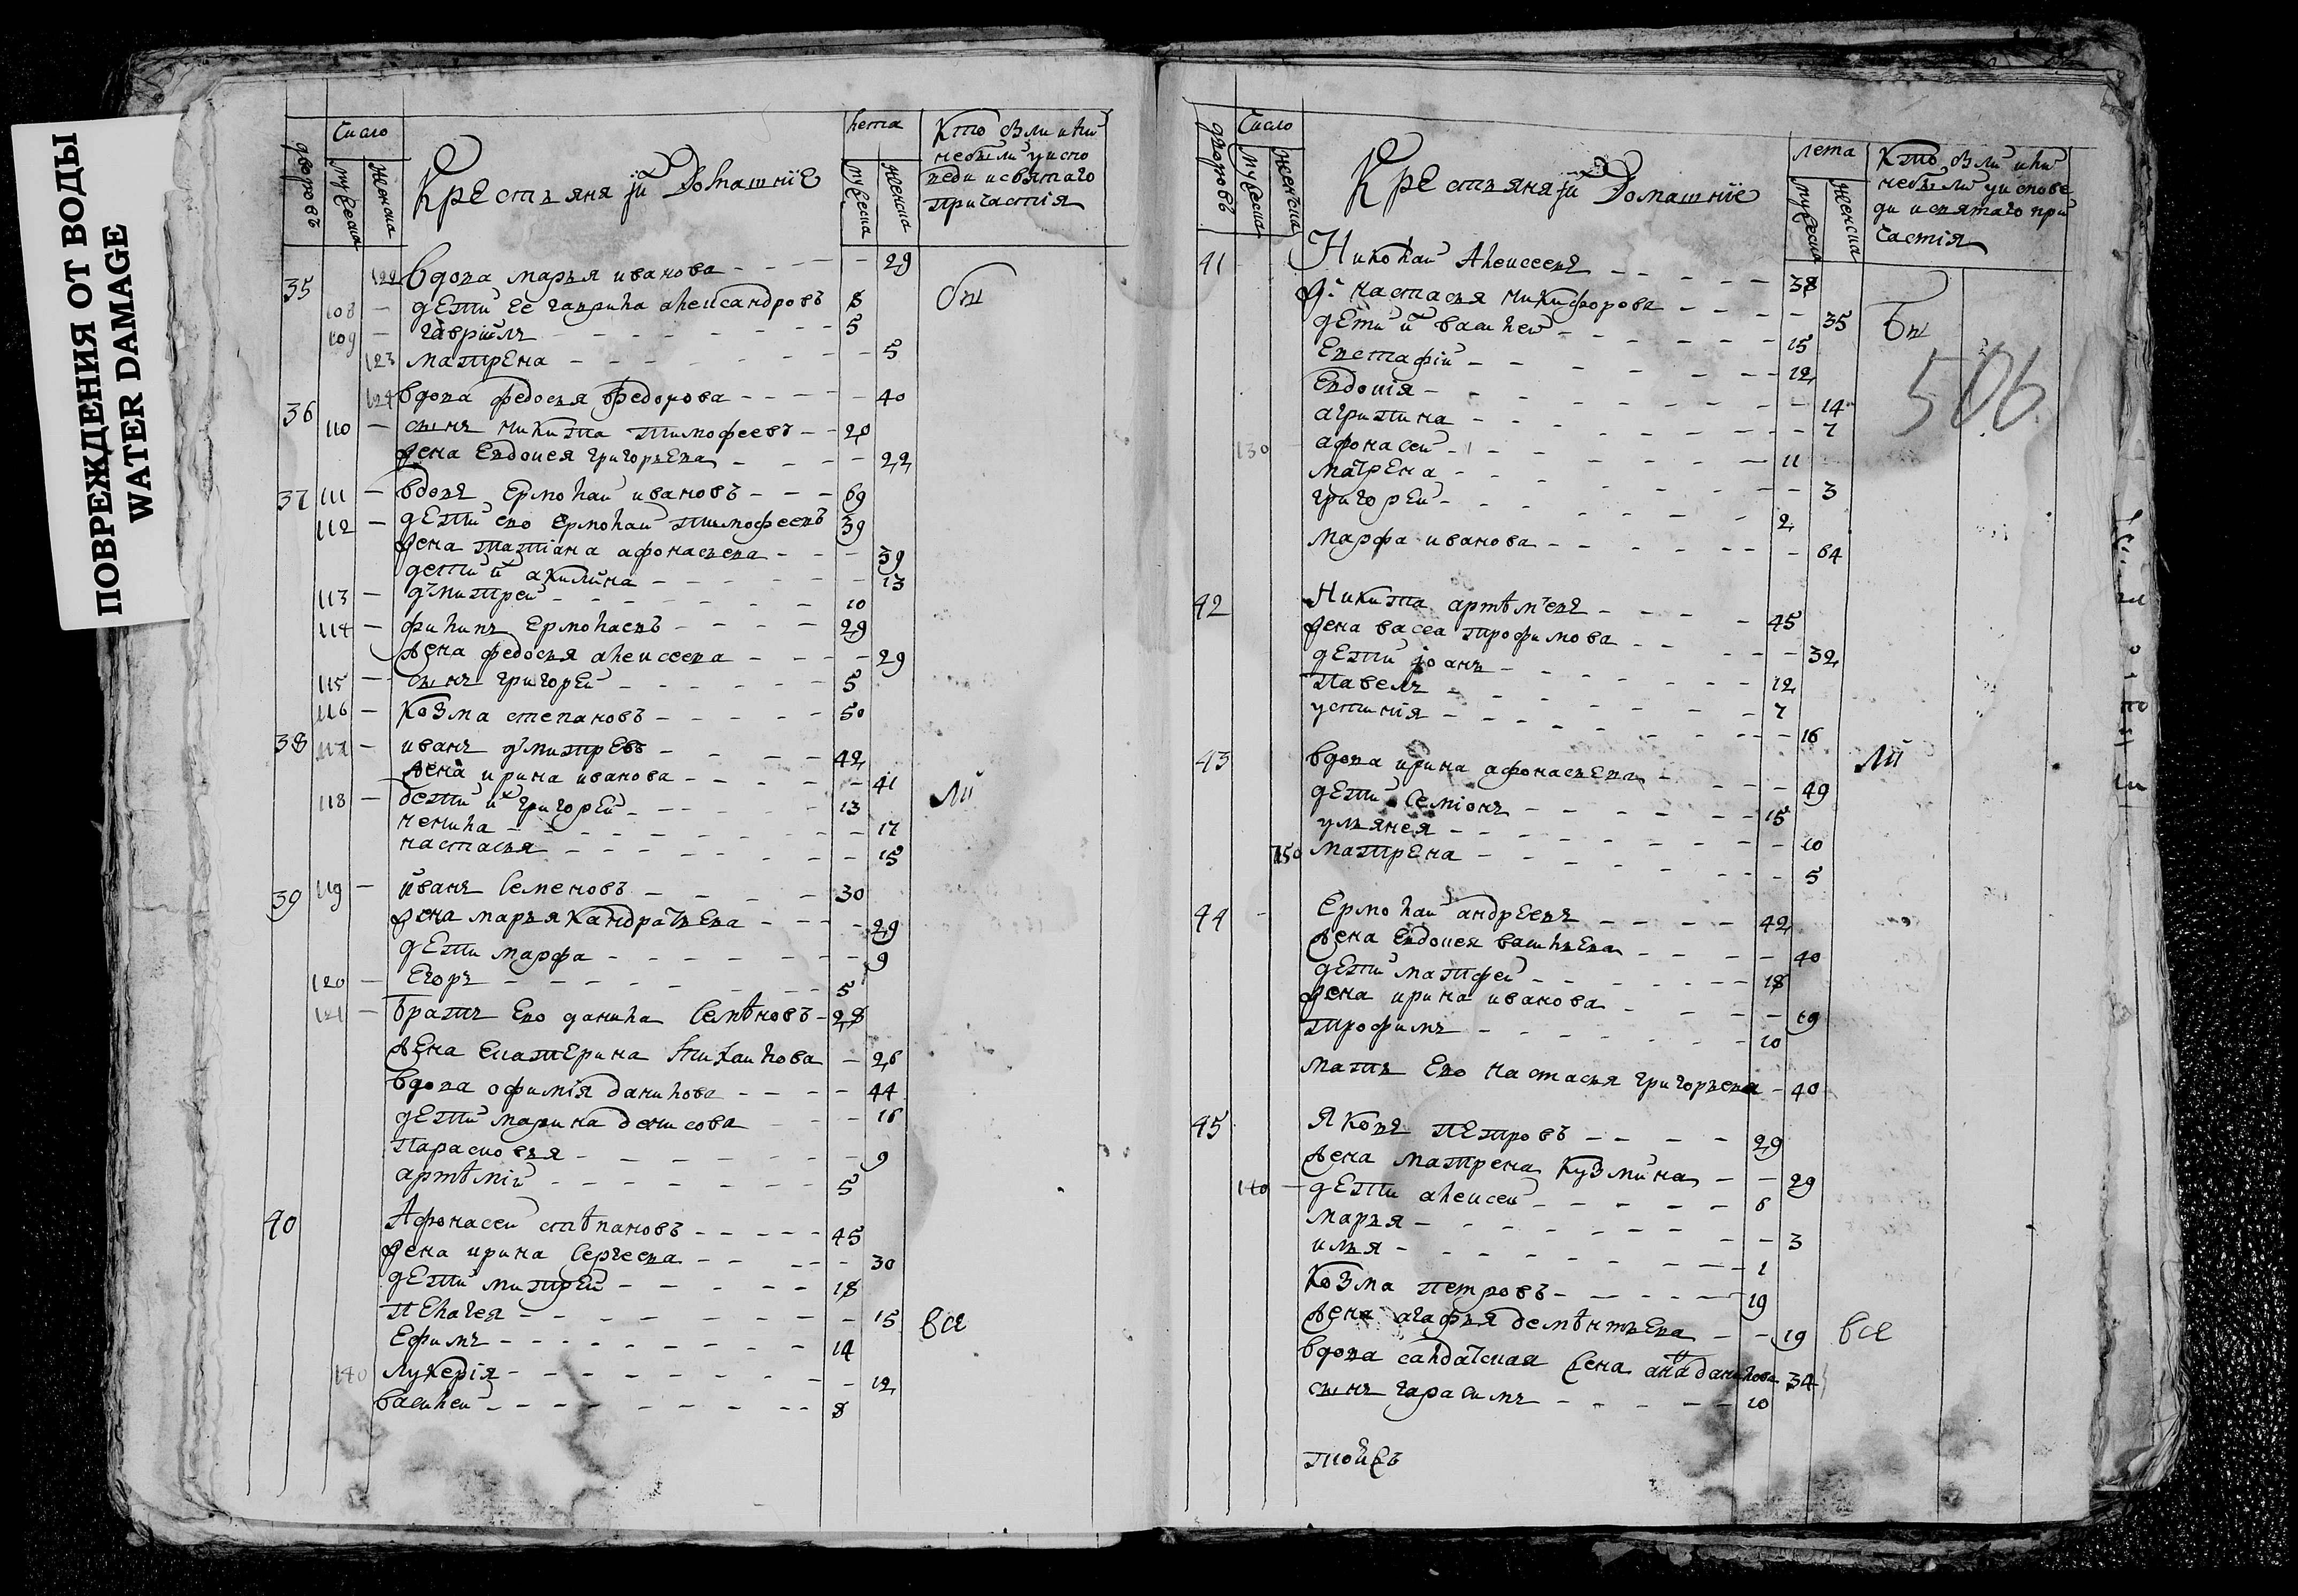 ПОВРЕЖДЕНИЯ ОТ ВОДЫ
WATER DAMAGE
дворовъ
Число
мужеска
женска
Крестьяня и Домашнїе
лета
мужеска
женска
Кто были или
небыли у испо
веди и святаго
причастїя
35 122 вдова марья иванова 29
108 дети ее гаврила александровъ 8
109 гаврїилъ 5
123 матрена 5
бы
36 124 вдова федосья федорова 40
110 сынъ никита тимофеевъ 20
жена евдокея григорьева 22
37 111 вдовъ ермолаи ивановъ 69
112 дети ево ермолаи тимофеевъ 39
жена татїана афонасьева 39
дети их акилина 13
113 дмитреи 10
114 филипъ ермолаевъ 29
жена федосья алексеева 29
115 сынъ григореи 5
116 козма степановъ 50
38 117 иванъ дмитревъ 42
жена ирина иванова 41
118 дети их григореи 13
ненила 17
настасья 15
ли
39 119 иванъ семеновъ 30
жена марья кандратьева 29
дети марфа 9
120 егоръ 5
121 братъ ево данила семѣновъ 28
жена екатерина михаилова 26
вдова офимїя данилова 44
дети марина денисова 16
парасковья 9
артѣмїи 5
40 Афонасеи стѣпановъ 45
жена ирина сергеева 30
дети митреи 18
пелагея 15
ефимъ 14
140 лукерїя 12
василеи 8
все
дворовъ
Число
мужеска
женска
Крестьяня и Домашнїе
лета
мужеска
женска
Кто были или
небыли у испове
ди и святаго при
частїя
41 Николаи Алексеевъ 38
ж: настасья никифорова 35
дети их василеи 15
евстафїи 12
евдокїя 14
агрипина 7
130 афонасеи 11
матрена 3
григореи 2
марфа иванова 64
бы
506
42 Никита артѣмʼевъ 45
жена васса трофимова 32
дети іоанъ 12
павелъ 7
устинїя 16
43 вдова ирина афонасьева 49
дети семїонъ 15
ульянея 10
150 матрена 5
ли
44 ермолаи андреевъ 42
жена евдокея васильева 40
дети матфеи 18
жена ирина иванова 19
трофимъ 10
мать ево настасья григорьева 40
45 Яковъ петровъ 29
жена матрена кузмина 29
140 дети алексеи 6
марья 3
илья 1
козма петровъ 19
жена агафья демѣнтьева 19
вдова салдатская жена анна данилова 34
сынъ гарасимъ 10
все